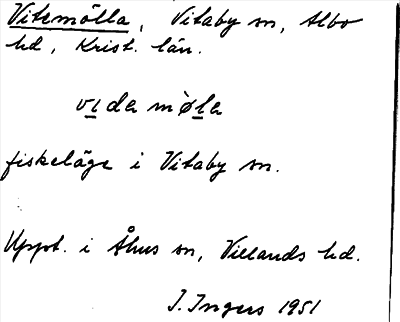 Vitemölla, Vitaby sn, Albo
hd, Krist. län.
vida mø̀la
fiskeläge i Vitaby sn.
Uppt. i Åhus sn, Villands hd.
J. Ingers 1951